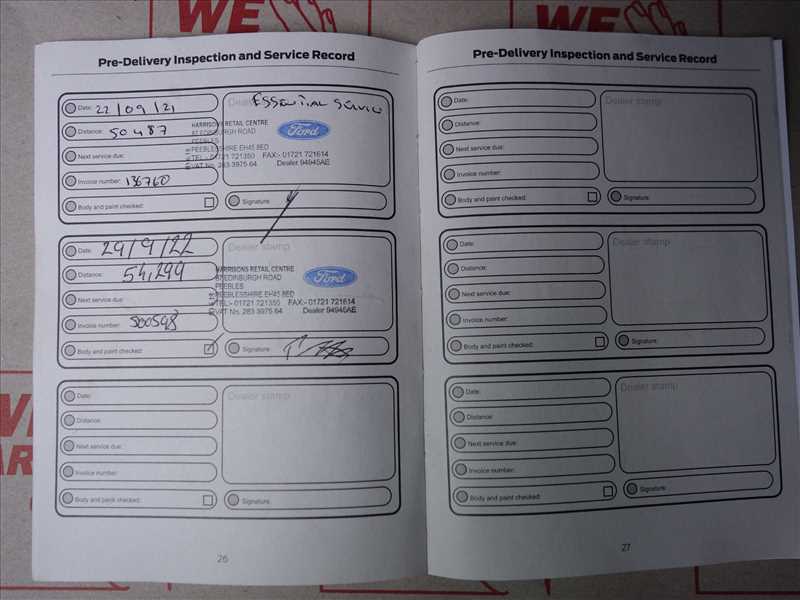 WE
WE
Pre-Delivery Inspection and Service Record
Date: 22/09/21
Distance: 50487
Next service due:
Invoice number: 136760
Body and paint checked:
Dealer
ESSENTIAL SERVICE
HARRISONS RETAIL CENTRE
EDINBURGH ROAD
PEEBLES
PEEBLESSHIRE EH45 8ED
TEL:- 01721 721350 FAX:- 01721 721614
VAT No. 283 3975 64 Dealer 94945AE
Ford
Signature:
Date: 29/9/22
Distance: 54,299
Next service due:
Invoice number: 500598
Body and paint checked:
Dealer stamp
HARRISONS RETAIL CENTRE
EDINBURGH ROAD
PEEBLES
PEEBLESSHIRE EH45 8ED
TEL:- 01721 721350 FAX:- 01721 721614
VAT No. 283 3975 64 Dealer 94945AE
Ford
Signature:
Date:
Distance:
Next service due:
Invoice number:
Body and paint checked:
Dealer stamp
Signature:
26
Pre-Delivery Inspection and Service Record
Date:
Distance:
Next service due:
Invoice number:
Body and paint checked:
Dealer stamp
Signature:
Date:
Distance:
Next service due:
Invoice number:
Body and paint checked:
Dealer stamp
Signature:
Date:
Distance:
Next service due:
Invoice number:
Body and paint checked:
Dealer stamp
Signature:
27